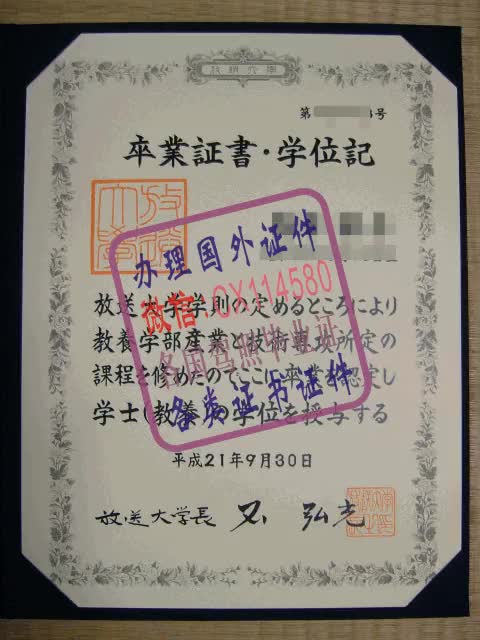 第 号
卒業証書・学位記
办理国外证件
微信:QX114580
放送大学学則の定めるところにより
教養学部産業と技術専攻所定の
課程を修めたのでここに卒業を認定し
各类证书证件
学士(教養)の学位を授与する
平成21年9月30日
放送大学長 石 弘光